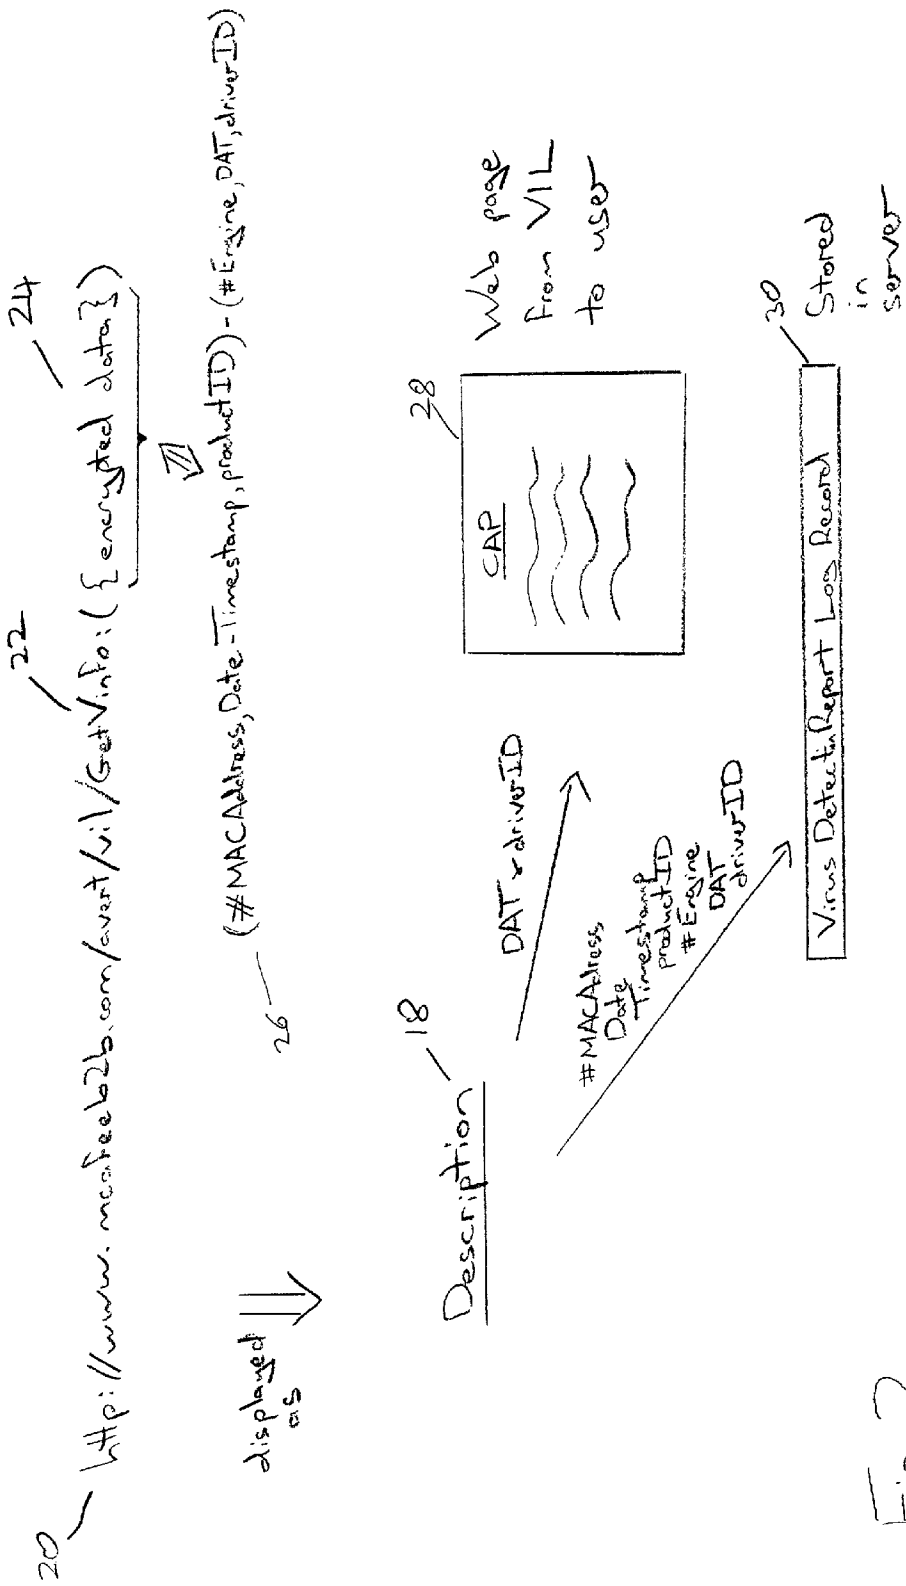 20
http://www.mcafeeb2b.com/avert/vil/GetVinfo:({encrypted data})
22
24
26
(#MACAddress, Date-Timestamp, productID))-(#Engine, DAT, driverID)
displayed
as
Description
18
DAT & driverID
#MACAdress
Date
Timestamp
productID
#Engine
DAT
driverID
CAP
28
Web page
from VIL
to user
Virus Detection Report Log Record
30
Stored
in
server